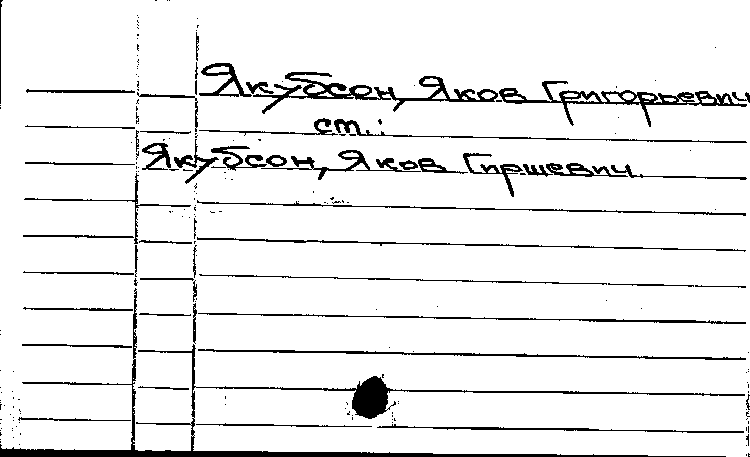 Якубсон, Яков Григорьевич
ст.:
Якубсон, Яков Гиршевич.